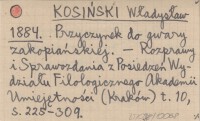 KOSIŃSKI Władysław
1884. Przyczynek do gwary
zakopiańskiej. – Rozprawy
i Sprawozdania z Posiedzeń Wy-
działu Filologicznego Akademii
Umiejętności (Kraków) t. 10,
s. 225-309.